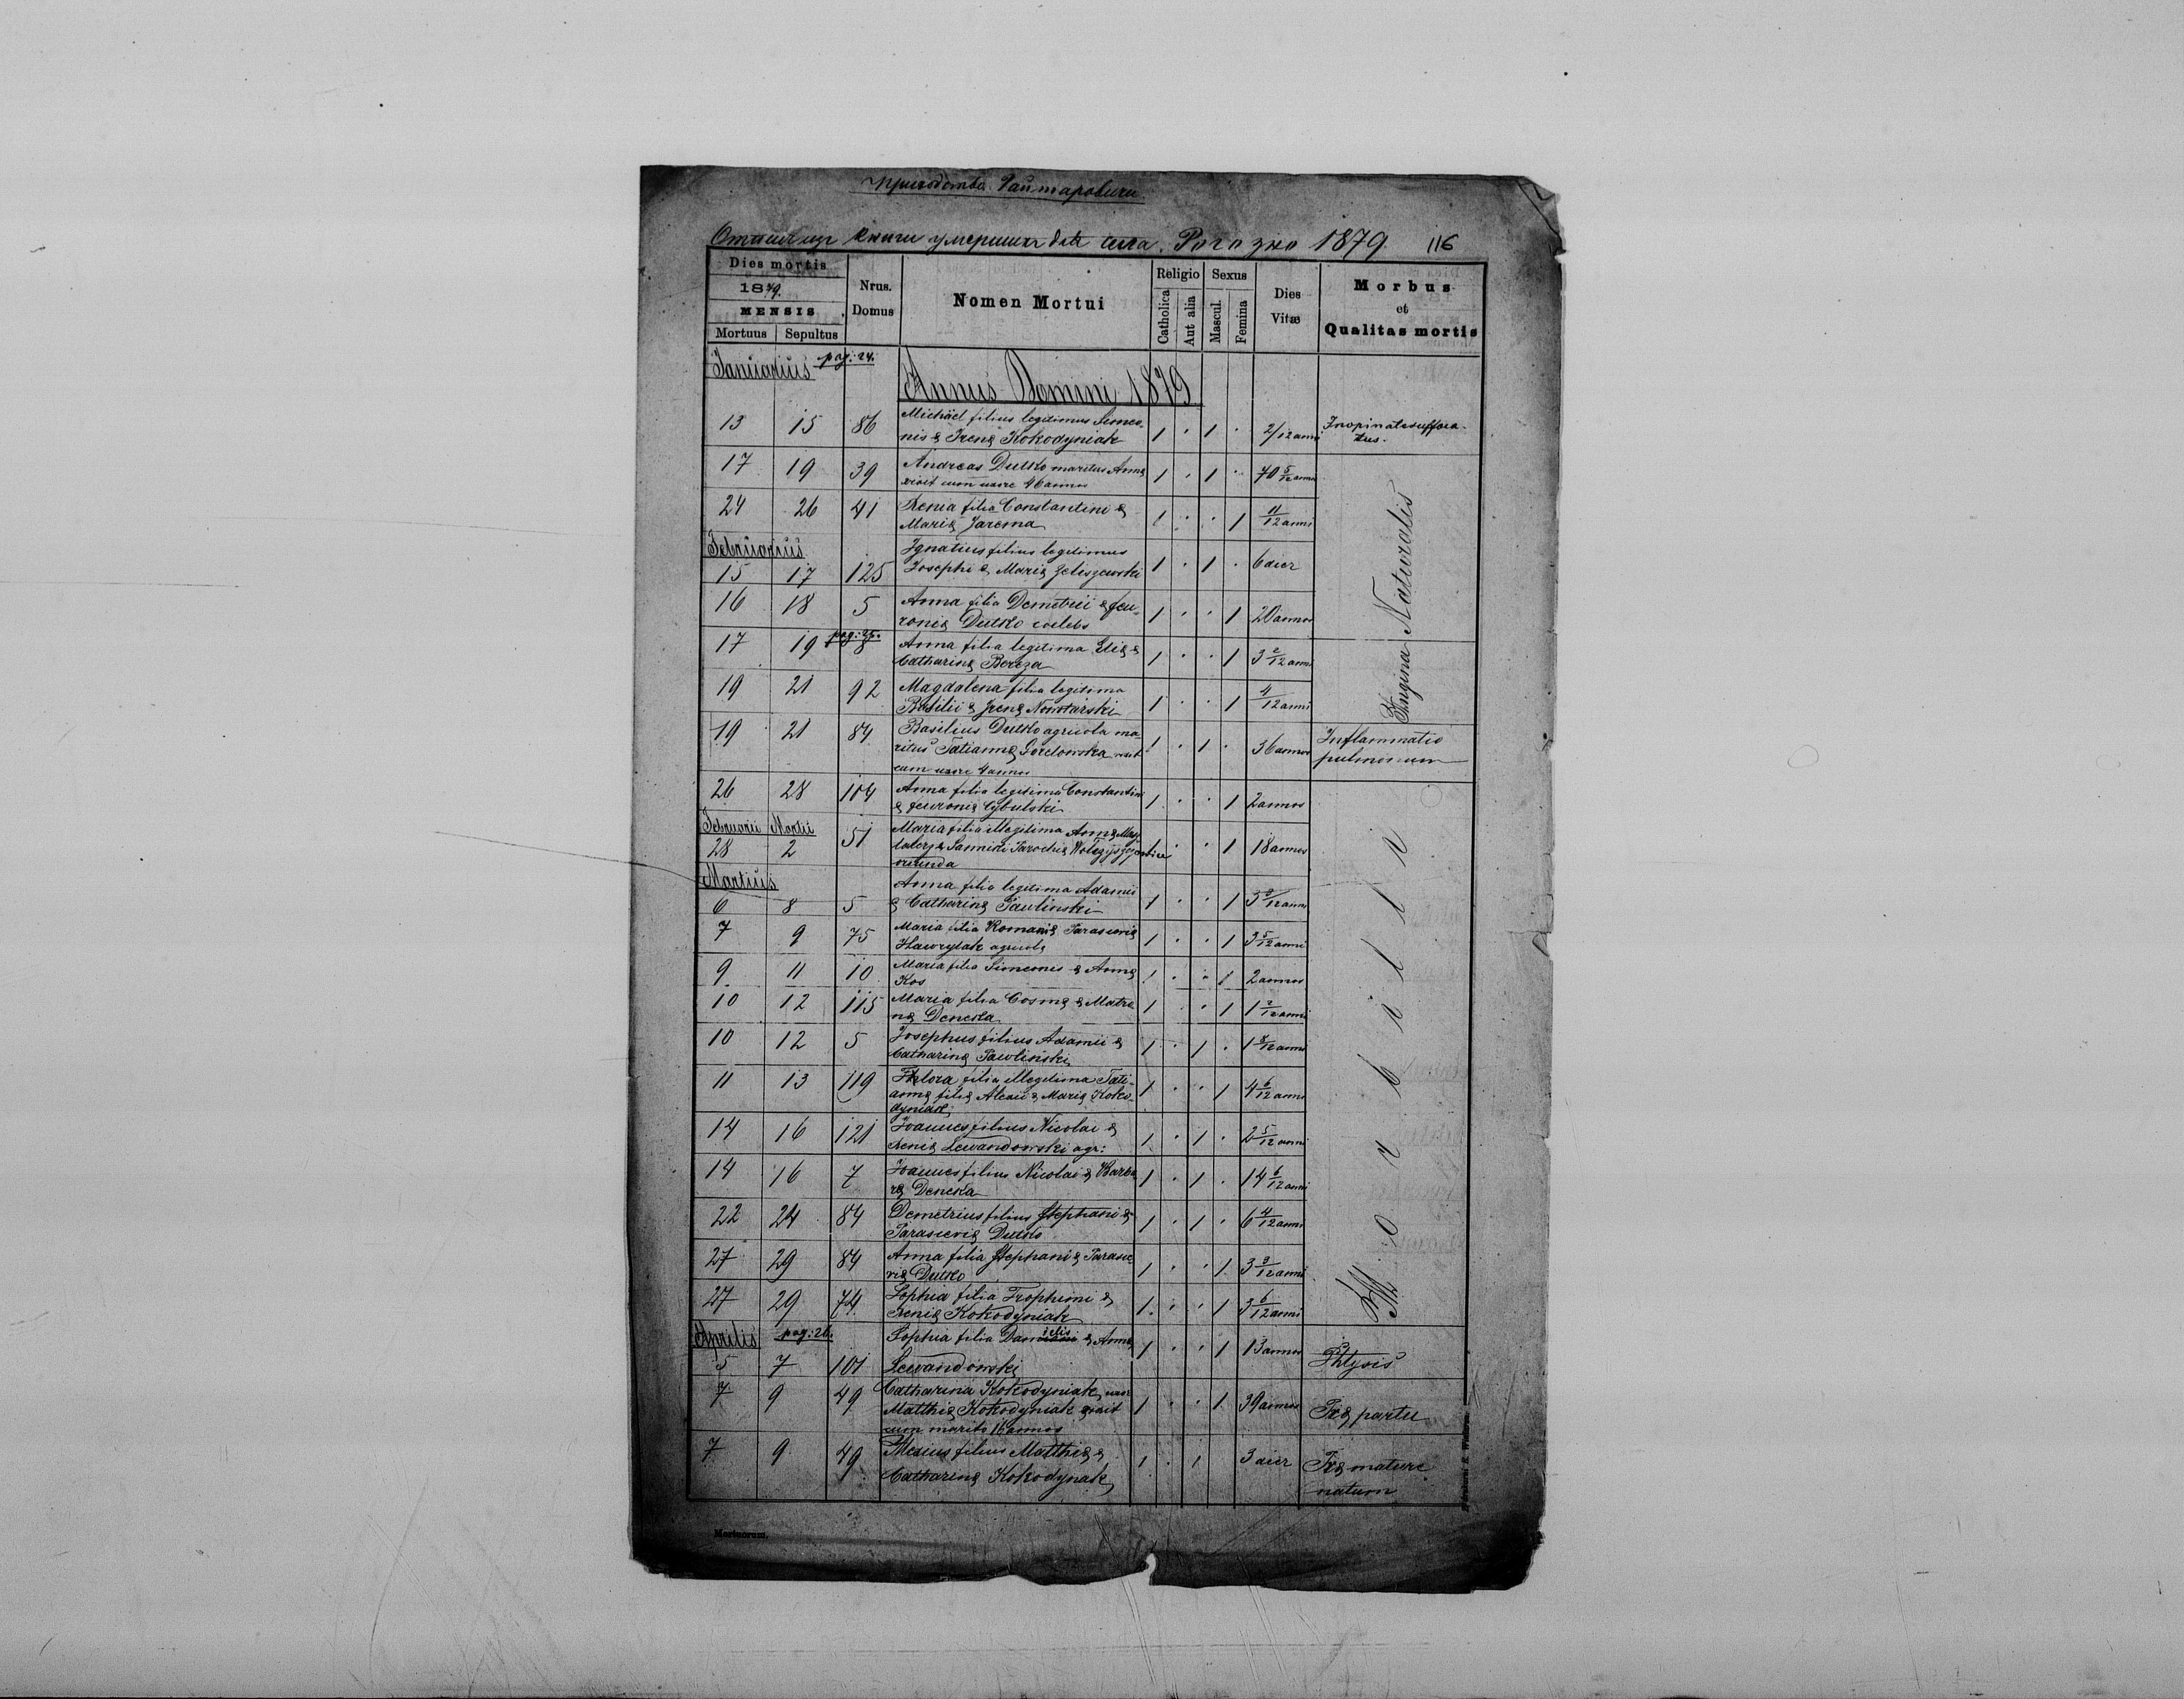 Отпис из книги умерших для села Рогузно 1879. 116
Dies mortis
1879.
MENSIS
Mortuus Sepultus
Nrus. Domus
Nomen Mortui
Religio
Catholica Aut alia
Sexus
Mascul. Femina
Dies Vitæ
Morbus
et
Qualitas mortis
Januarius pag: 24.
Annus Domini 1879
13 15 86 Michäel filius legitimus Simeo- 1 . 1 . 2/12 anni Inopinate suffoca-
nis & Irenæ Kokodyniak tus.
17 19 39 Andreas Dutko maritus Annæ 1 . 1 . 70 5/12 anni
vixit cum uxore 46 annos
24 26 41 Xenia filia Constantini & 1 . . 1 11/12 anni
Mariæ Jarema
Naturalis
Februarius
15 17 125 Ignatius filius legitimus 1 . 1 . 6 dier
Josephi & Mariæ Zeliszewski
16 18 5 Anna filia Demetrii & Feu- 1 . . 1 20 annos
roniæ Dutko coelebs
pag: 25.
17 19 8 Anna filia legitima Eliæ & 1 . . 1 3 2/12 anni
Catharinæ Bereza
Angina
19 21 92 Magdalena filia legitima 1 . . 1 4/12 anni
Basilii & Irenæ Nowotarski
19 21 84 Basilius Dutko agricola ma- 1 . 1 . 36 annos Inflammatio
ritus Tatiannæ vixit pulmonum
cum uxore 4 annos
26 28 104 Anna filia legitima Constantini 1 . . 1 2 annos
& Feuroniæ Cybulski
Februarii Martii
28 2 51 Maria filia illegitima Annæ 1 . . 1 18 annos
oriunda
Martius
6 8 5 Anna filia legitima Adamii 1 . . 1 3 3/12 anni
& Catharinæ Pawlinski
7 9 75 Maria filia Romani & Parasceviæ 1 . . 1 3 5/12 anni
Hawrylak agricolæ
9 11 10 Maria filia Simeonis & Annæ 1 . . 1 2 annos
Kos
10 12 115 Maria filia Cosmæ & Matro 1 . . 1 1 2/12 anni
næ Deneka
10 12 5 Josephus filius Adamii & 1 . 1 . 1 8/12 anni
Catharinæ Pawlinski
11 13 119 Flora filia illegitima Tati- 1 . . 1 4 6/12 anni
annæ filiæ Alexii & Mariæ Koko-
dyniak
14 16 121 Joannes filius Nicolai & 1 . 1 . 2 5/12 anni
Xeniæ Lewandowski agr:
14 16 7 Joannes filius Nicolai & Barba 1 . 1 . 14 6/12 anni
ræ Deneka
22 24 84 Demetrius filius Stephani & 1 . 1 . 6 4/12 anni
Parasceviæ Dutko
27 29 84 Anna filia Stephani & Parasce 1 . . 1 3 3/12 anni
viæ Dutko
27 29 74 Sophia filia Trophimi & 1 . . 1 3 6/12 anni
Xeniæ Kokodyniak
Morbilli
Aprilis pag: 26.
5 7 101 Sophia filia Danielis & Annæ 1 . . 1 13 annos Phtysis
Lewandowski
7 9 49 Catharina Kokodyniak uxor 1 . . 1 39 annos Præ partu
Matthiæ Kokodyniak vixit
cum marito 16 annos
7 9 49 Alexius filius Matthiæ & 1 . 1 3 dier Præ mature
Catharinæ Kokodyniak natum
Mortuorum.